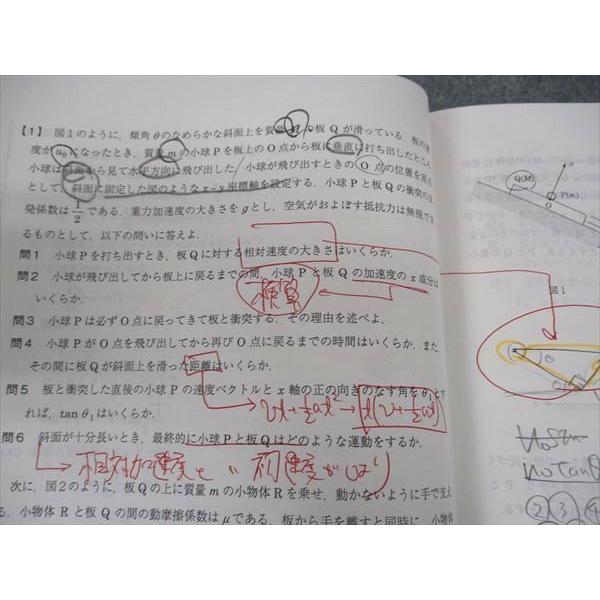 【1】 図1のように，傾角θのなめらかな斜面上を質量 の板 Q が滑っている．板の
度が u₀ になったとき，質量 m の小球 P を板上の O 点から板に垂直に打ち出したところ
小球は斜面から見て水平方向に飛び出した．小球が飛び出すときの O 点の位置を原点
として，斜面に固定した図のような x−y 座標軸を設定する．小球 P と板 Q の衝突の
発係数は 1/2 である．重力加速度の大きさを g とし，空気がおよぼす抵抗力は無視でき
るものとして，以下の問いに答えよ．
問1 小球 P を打ち出すとき，板 Q に対する相対速度の大きさはいくらか．
問2 小球が飛び出してから板上に戻るまでの間，小球 P と板 Q の加速度の x 成分は
いくらか．
検算
問3 小球 P は必ず O 点に戻ってきて板と衝突する．その理由を述べよ．
問4 小球 P が O 点を飛び出してから再び O 点に戻るまでの時間はいくらか．また，
その間に板 Q が斜面上を滑った距離はいくらか．
問5 板と衝突した直後の小球 P の速度ベクトルと x 軸の正の向きのなす角を θ₁ とす
れば，tan θ₁ はいくらか．
問6 斜面が十分長いとき，最終的に小球 P と板 Q はどのような運動をするか．
次に，図2のように，板 Q の上に質量 m の小物体 R を乗せ，動かないように手で支え
る．小物体 R と板 Q の間の動摩擦係数は μ である．板から手を離すと同時に，小物体
Q(M)
P(m)
O
図1
θ
u₀tanθ
② ③ ④